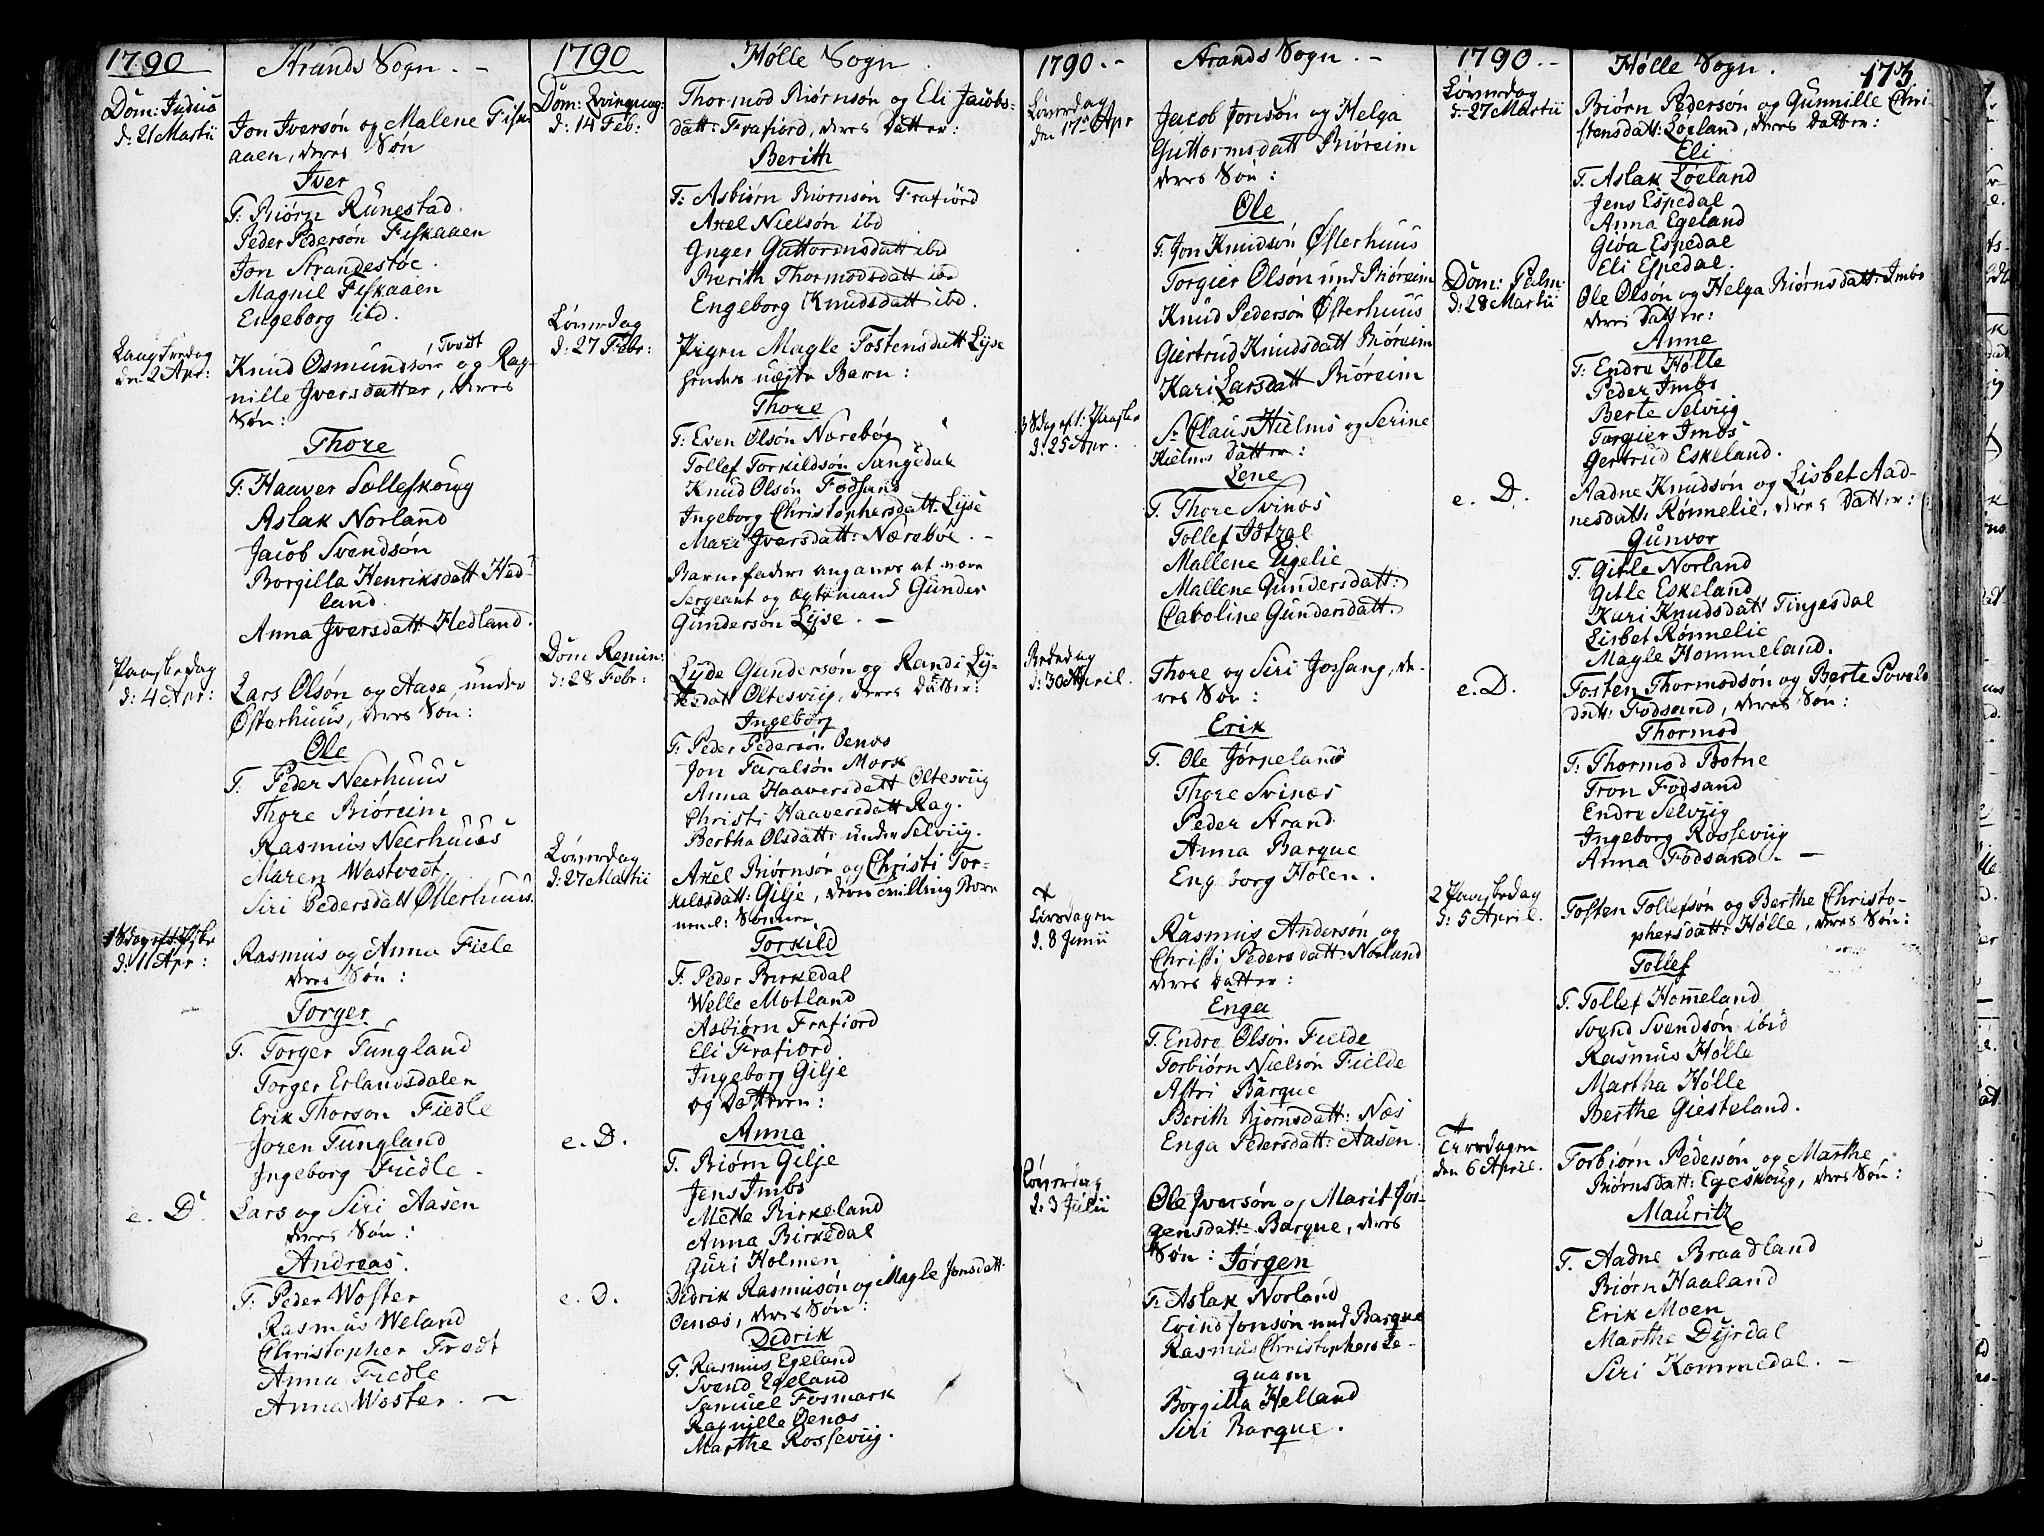 1790
Strands Sogn. -
Dom: Judica
d: 21 Martii
Jon Iversøn og Malene Fisk-
aaen, deres Søn
Iver
F: Biørn Runestad.
Peder Pedersøn Fiskaaen
Jon Strandestøe.
Magnil Fiskaaen
Engeborg ibd.
Lang Fredag
den 2 Apr:
Knud Osmundsøn Tvedt og Rag-
nille Iversdatter, deres
Søn:
Thore
F: Haaver Sølleskoug
Aslak Norland
Jacob Svendsøn
Borgilla Henriksdatt Hed-
land.
Anna Iversdatt Hedland.
Paaskedag
d: 4 Apr:
Lars Olsøn og Aase under
Østerhuus, deres Søn:
Ole
F: Peder Neerhuus
Thore Biøreim
Rasmus Neerhuus
Maren Wastvedt
Siri Pedersdatt Østerhuus.
1 Sdag eft: Paaske
d: 11 Apr:
Rasmus og Anna Fiele
deres Søn:
Torger
F. Torger Tungland
Torger Erlandsdalen
Erik Thorson Fiedle
Joren Tungland
Ingeborg Fiedle -
e. D.
Lars og Siri Aasen
deres Søn:
Andreas.
F: Peder Woster
Rasmus Weland
Christopher Tredt
Anna Fiedle
Anna Woster. -
1790
Hølle Sogn.
Dom: Qvinquag:
d: 14 Feb:
Thormod Biørnsøn og Eli Jacobs-
datt: Frafiord, deres Datter:
Berith
F: Asbiørn Biørnsøn Frafiord
Axel Nielsøn ibd
Inger Guttormsdatt ibd
Berith Thormodsdatt ibd
Engeborg Knudsdatt ibd.
Løverdag
d: 27 Febr:
Pigen Magle Tostensdatt Lyse
hendes uægte Barn:
Thore
F: Even Olsøn Nærebøe
Tollef Torkildsøn Sangedal
Knud Olsøn Fodsand
Ingeborg Christophersdatt. Lyse
Mari Iversdatt: Nærebøe. -
Barnefader angaves at være
Sergeant og ægtemand Gunder
Gundersøn Lyse. -
Dom Remin:
d: 28 Febr:
Lyde Gundersøn og Randi Ly-
desdatt Oltesviig, deres Datter:
Ingeborg
F: Peder Pedersøn Oenæs
Jon Taralsøn Mork
Anna Haaversdatt Oltesviig
Christi Haaversdatt Rag.
Bertha Olsdatt: under Selviig.
Løverdag
d: 27 Martii
Axel Biørnsøn og Christi Tor-
kilsdatt: Gilje, deres tvilling Børn
nml: Sønnen
Torkild
F: Peder Birkedal
Welle Motland
Asbiørn Frafiord
Eli Frafiord
Ingeborg Gilje
og Datteren:
e. D.
Anna
F. Biørn Gilje
Jens Imbs
Mette Birkeland
Anna Birkedal
Guri Holmen
e. D.
Didrik Rasmusøn og Magle Jonsdatt.
Oenæs, deres Søn:
Didrik
F. Rasmus Egeland
Svend Egeland
Samuel Fosmark
Ragnille Oenæs
Marthe Rosseviig.
1790. -
Strands Sogn. -
Løverdag
den 17de Apr
Jacob Jonsøn og Helga
Guttormsdatt Biøreim
deres Søn:
Ole
F. Jon Knudsøn Østerhuus
Torgier Olsøn und Biøreim
Knud Pedersøn Østerhuus
Giertrud Knudsdatt Biøreim
Kari Larsdatt Biøreim
3 Sdag eft: Paaske
d: 25 Apr.
Sr Claus Hielms og Serine
Hielms Datter:
Lene
F. Thore Svinæs
Tollef Idtzal
Mallene Ugelie
Mallene Gundersdatt:
Caroline Gundersdatt.
Bededag
d: 30 April.
Thore og Siri Jossang, de-
res Søn:
Erik
F. Ole Jørpeland
Thore Svinæs
Peder Strand
Anna Barque
Engeborg Holen.
Tirsdagen
d. 8 Junii
Rasmus Andersøn og
Christi Pedersdatt: Norland
deres Datter:
Enga
F. Endre Olsøn Fielde
Torbiørn Nielsøn Fielde
Astri Barque
Berith Biornsdatt: Næs
Enga Pedersdatt: Aasen.
Løverdag
d: 3 Julii
Ole Iversøn og Marit Jør-
gensdatt: Barque, deres
Søn: Jørgen
F. Aslak Norland
Evind Jonsøn und Barque
Rasmus Christophersøn Le-
quam
Borgilla Helland
Siri Barque.
1790. -
Hølle Sogn.
173.
Løverdag
d: 27 Martii
Biørn Pedersøn og Gunnille Chri-
stensdatt: Løeland, deres Datter:
Eli
F. Aslak Løeland
Jens Espedal
Anna Egeland
Giøa Espedal
Eli Espedal.
Dom: Palm:
d: 28 Martii
Ole Olsøn og Helga Biørnsdatt: Imbs
deres Datter:
Anne
F: Endre Hølle
Peder Imbs
Berte Selviig
Torgier Imbs
Gertrud Eskeland.
e. D.
Aadne Knudsøn og Lisbet Aad-
nesdatt: Rønnelie, deres Datter:
Gunvor
F. Gitle Norland
Gitle Eskeland
Kari Knudsdatt Tingesdal
Lisbet Rønnelie
Magle Hommeland.
e. D.
Tosten Thormodsøn og Berte Povels
datt: Fodsand, deres Søn:
Thormod
F: Thormod Botne
Tron Fodsand
Endre Selviig
Ingeborg Rosseviig
Anna Fodsand. -
2 Paaskedag
d: 5 April.
Tosten Tollefsøn og Berthe Christo-
phersdatt: Hølle, deres Søn:
Tollef
F. Tollef Hommeland
Svend Svendsøn ibid
Rasmus Hølle
Martha Hølle
Berthe Giesteland.
Tirsdagen
den 6 April.
Torbiørn Pedersøn og Marthe
Biørnsdatt: Egeskoug, deres Søn:
Mauritz
F. Aadne Braadland
Biørn Haaland
Erik Moen
Marthe Dyrdal
Siri Kommedal. -